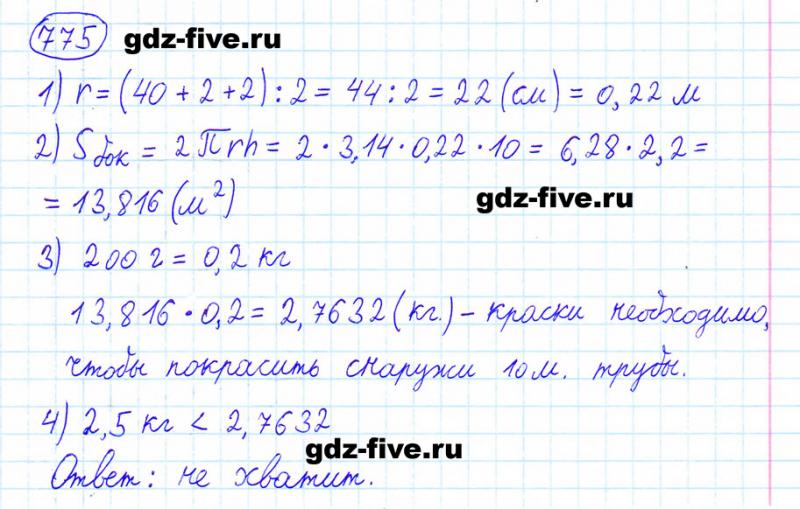 775 gdz-five.ru
1) r = (40 + 2 + 2) : 2 = 44 : 2 = 22 (см) = 0,22 м
2) Sбок = 2πrh = 2 · 3,14 · 0,22 · 10 = 6,28 · 2,2 =
= 13,816 (м²) gdz-five.ru
3) 200 г = 0,2 кг
13,816 · 0,2 = 2,7632 (кг.) – краски необходимо,
чтобы покрасить снаружи 10 м. трубы.
4) 2,5 кг < 2,7632
gdz-five.ru
Ответ: не хватит.